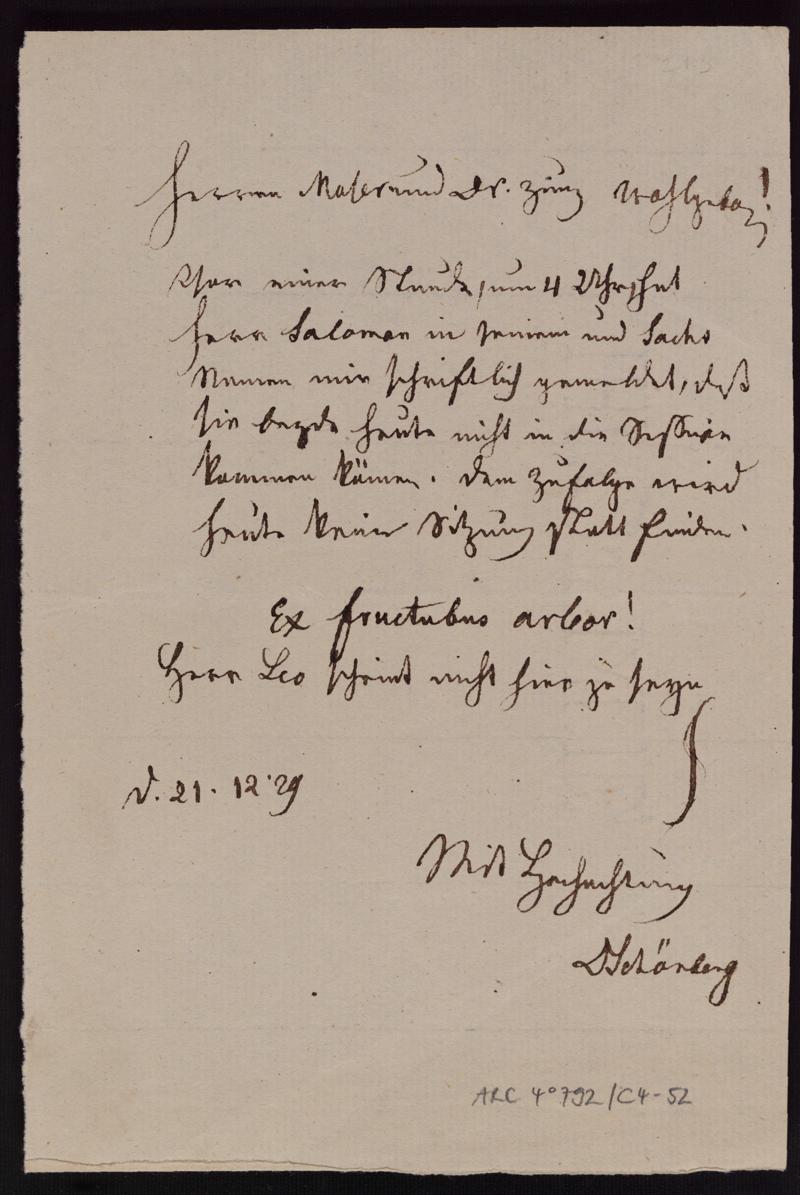 Herren Moser und Dr. Zunz Wohlgeb!
Vor einer Stunde, um 4 Uhr, hat
Herr Salomon in seinem und Sachs
Namen mir schriftlich gemeldet, daß
sie beyde heute nicht in die Session
kommen können. Dem zufolge wird
heute keine Sitzung statt finden.
Ex fructubus arbor!
Herr Leo scheint nicht hier zu seyn
d. 21. 12. 29
Mit Hochachtung
DSchönberg
ARC 4° 792/C4-52